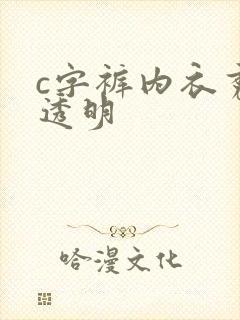 c字裤内衣
透明
哈漫文化